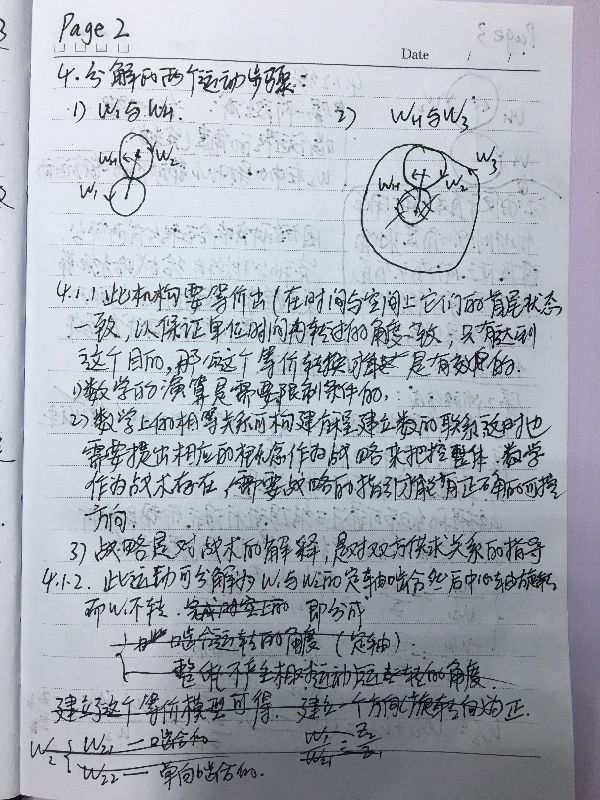 Page 2
Date / /
4. 分解的两个运动步骤:
1) W1与WH. 2) WH与W3
WH W2 W1
W3 WH W2
4.1.1 此机构要等价出(在时间与空间上它们的首尾状态
一致, 以保证单位时间内转过的角度一致, 只有达到
这个目的, 那么这个等价转换才能是有效果的.
1) 数学的演算是需要限制条件的.
2) 数学上的相等关系可构建 建立数的联系 这时也
需要提出相应的概念作为战略来把控整体, 数学
作为战术存在, 需要战略的指引才能有正确的可控
方向.
3) 战略是对战术的解释, 是对双方供求关系的指导
4.1.2. 此运动可分解为W1与W2的定轴啮合然后中心轴旋转
而W1不转. 即分成
啮合运转的角度 (定轴)
整体不产生相对运动运转的角度
建立了这个等价模型可得. 建立一个方向 旋转方向为正.
W2 { W21 — 啮合的
W22 — 单向啮合的.
W1/W21 = Z2/Z1